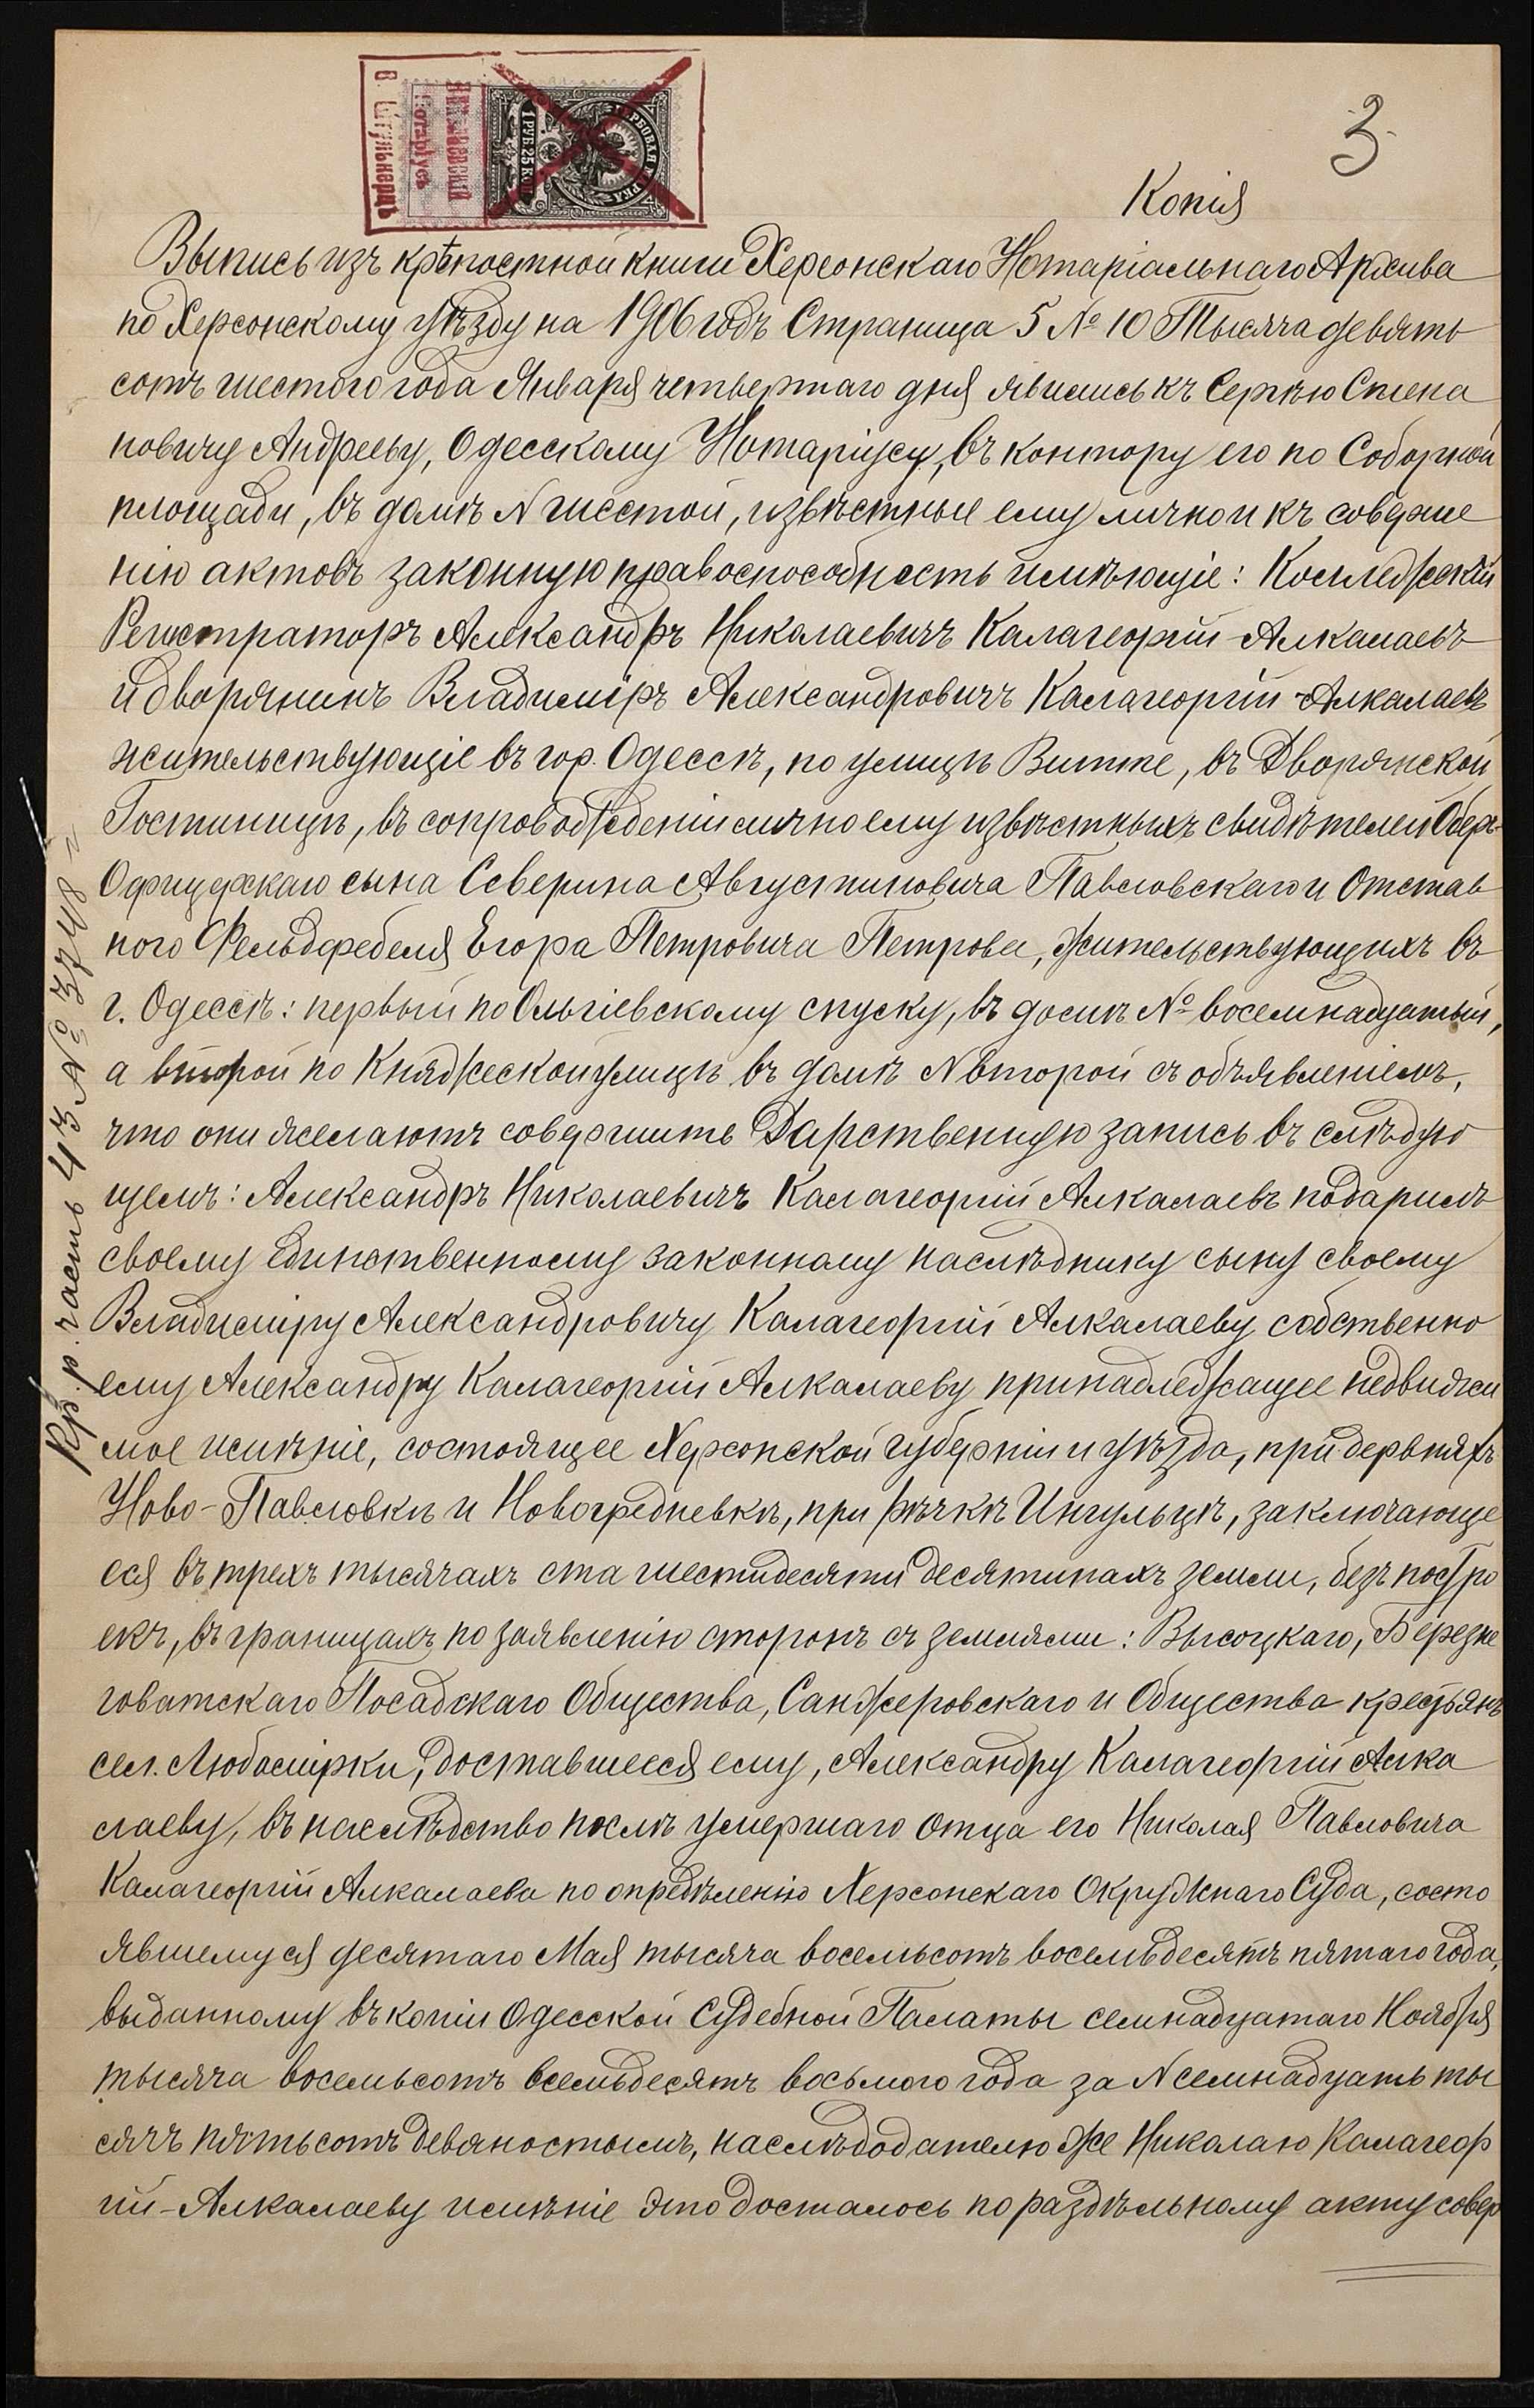 3
Копія
Выпись изъ крѣпостной книги Херсонскаго Нотаріальнаго Архива
по Херсонскому уѣзду на 1906 годъ Страница 5 № 10 Тысяча девять
сотъ шестого года Января четвертаго дня явились къ Сергѣю Степа
новичу Андрееву, Одесскому Нотаріусу, въ контору его по Соборной
площади, въ домѣ N шестой, извѣстные ему лично и къ соверше
нію актовъ законную правоспособность имѣющіе: Коллежскій
Регистраторъ Александръ Николаевичъ Калагеоргій-Алкалаевъ
и дворянинъ Владиміръ Александровичъ Калагеоргій-Алкалаевъ
жительствующіе въ гор. Одессѣ, по улицѣ Витте, въ Дворянской
Гостиницѣ, въ сопровожденіи лично ему извѣстныхъ свидѣтелей Оберъ-
Офицерскаго сына Северина Августиновича Павловскаго и Отстав
ного Фельдфебеля Егора Петровича Петрова, жительствующихъ въ
г. Одессѣ: первый по Ольгіевскому спуску, въ домѣ № восемнадцатый,
а второй по Княжеской улицѣ въ домѣ N второй съ объявленіемъ,
что они желаютъ совершить Дарственную запись въ слѣдую
щемъ: Александръ Николаевичъ Калагеоргій Алкалаевъ подарилъ
своему единственному законному наслѣднику сыну своему
Владиміру Александровичу Калагеоргій Алкалаеву собственно
ему Александру Калагеоргій Алкалаеву принадлежащее недвижи
мое имѣніе, состоящее Херсонской губерніи и уѣзда, при деревняхъ
Ново-Павловкѣ и Новогредневкѣ, при рѣчкѣ Ингульцѣ, заключающе
еся въ трехъ тысячахъ ста шестидесяти десятинахъ земли, безъ постро
екъ, въ границахъ по заявленію сторонъ съ землями: Высоцкаго, Березне
говатскаго Посадскаго Общества, Санжеровскаго и Общества крестьянъ
сел. Любомірки, доставшееся ему, Александру Калагеоргій Алка
лаеву, въ наслѣдство послѣ умершаго отца его Николая Павловича
Калагеоргій Алкалаева по опредѣленію Херсонскаго Окружнаго Суда, состо
явшемуся десятаго Мая тысяча восемьсотъ восемьдесятъ пятаго года,
выданному въ копіи Одесской Судебной Палаты семнадцатаго Ноября
тысяча восемьсотъ восемьдесятъ восьмого года за N семнадцать ты
сячъ пятьсотъ девяностымъ, наслѣдодателю же Николаю Калагеор
гій-Алкалаеву имѣніе это досталось по раздѣльному акту совер
Кр. р. часть 43 № 3748
ГЕРБОВАЯ МАРКА
1 РУБ. 25 КОП.
Нотаріусъ